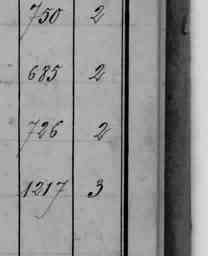 750 2
685 2
726 2
1217 3